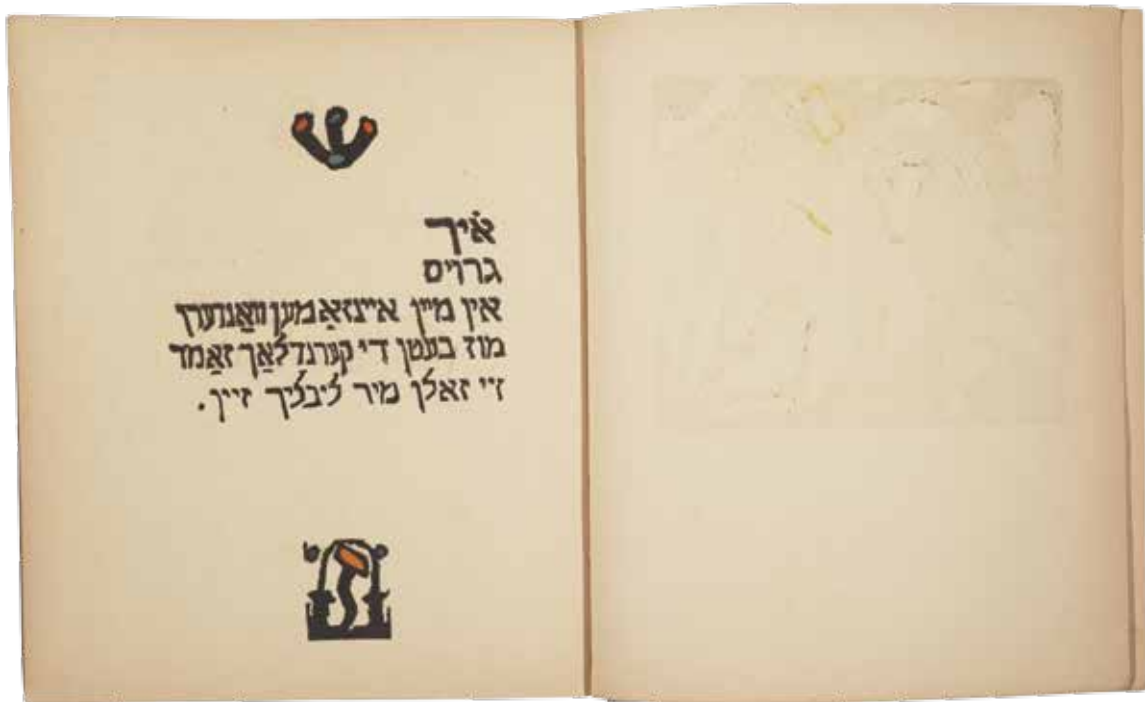 איך
גרויס
אין מיין איינזאַמען וואַנדערן
מוז בעטן די קערנדלאַך זאַמד
זיי זאלן מיר ליבליך זיין.